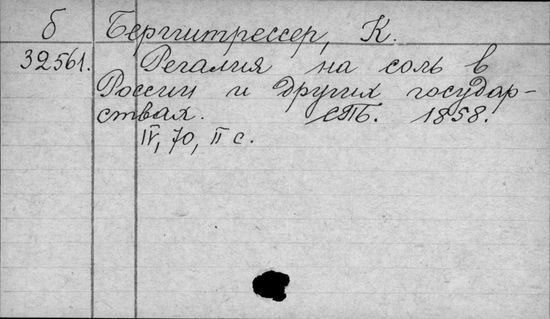 б Бергштрессер, К.
32561. Регалия на соль в
России и других государ-
ствах. СПб. 1858.
IV, 70, II с.